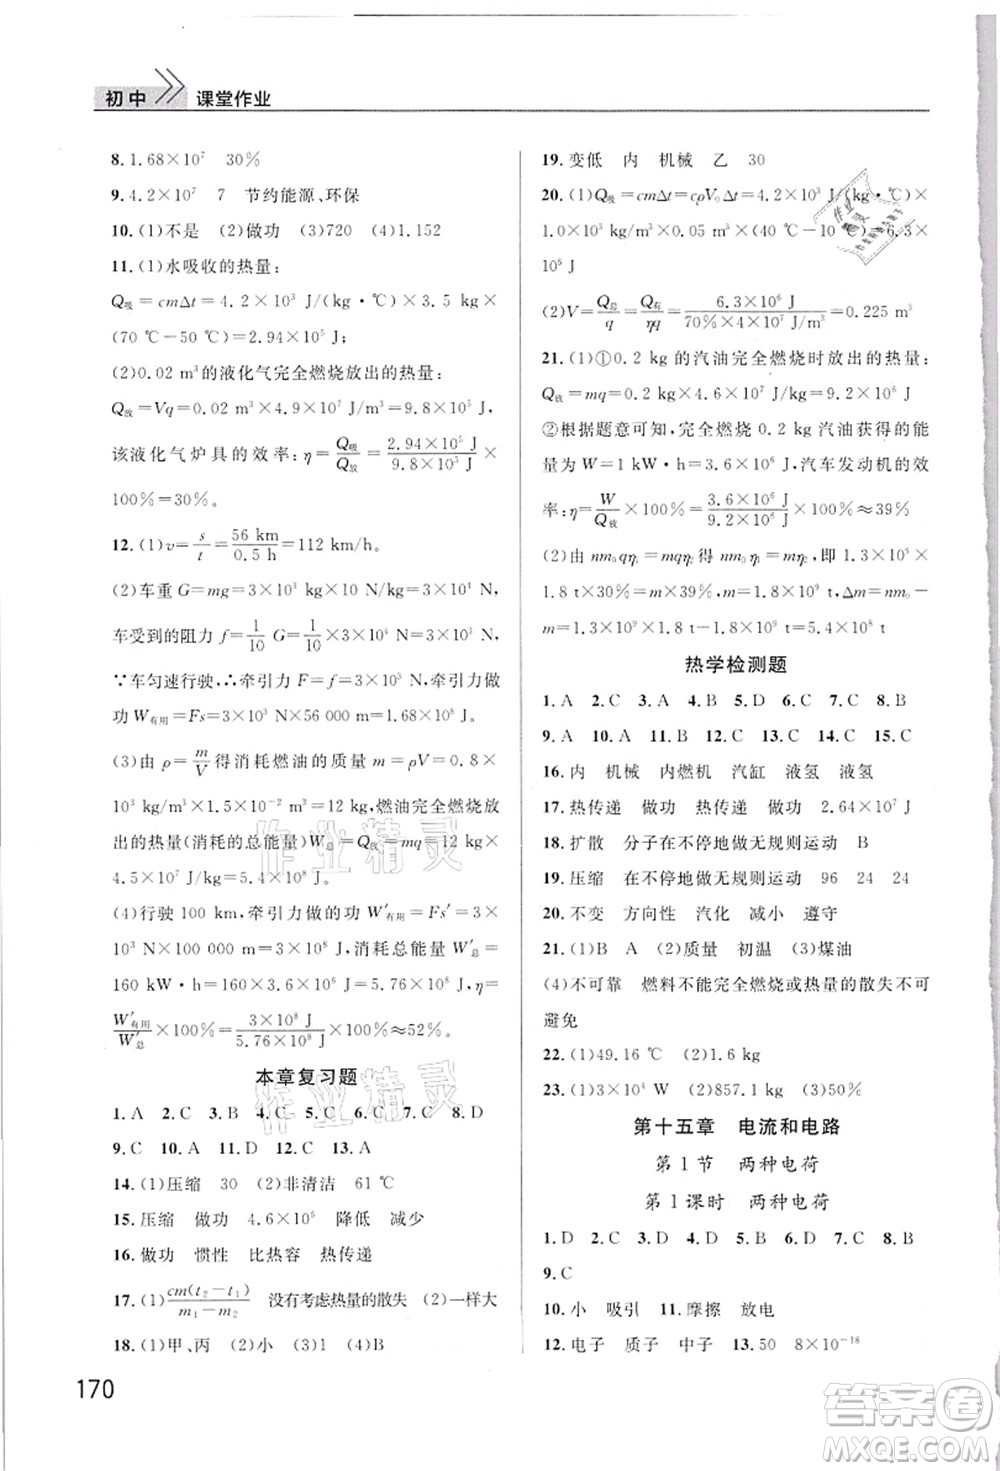 初中 课堂作业
8.1.68×10⁷ 30%
9.4.2×10⁷ 7 节约能源、环保
10.(1)不是 (2)做功 (3)720 (4)1.152
11.(1)水吸收的热量:
Q吸=cmΔt=4.2×10³ J/(kg·℃)×3.5 kg×
(70 ℃-50 ℃)=2.94×10⁵ J
(2)0.02 m³的液化气完全燃烧放出的热量:
Q放=Vq=0.02 m³×4.9×10⁷ J/m³=9.8×10⁵ J,
该液化气炉具的效率:η=Q吸/Q放=2.94×10⁵ J/9.8×10⁵ J×
100%=30%。
12.(1)v=s/t=56 km/0.5 h=112 km/h。
(2)车重G=mg=3×10³ kg×10 N/kg=3×10⁴ N,
车受到的阻力f=1/10 G=1/10×3×10⁴ N=3×10³ N,
∵车匀速行驶,∴牵引力F=f=3×10³ N,牵引力做
功W有用=Fs=3×10³ N×56 000 m=1.68×10⁸ J。
(3)由ρ=m/V得消耗燃油的质量m=ρV=0.8×
10³ kg/m³×1.5×10⁻² m³=12 kg,燃油完全燃烧放
出的热量(消耗的总能量)W总=Q放=mq=12 kg×
4.5×10⁷ J/kg=5.4×10⁸ J。
(4)行驶100 km,牵引力做的功W′有用=Fs′=3×
10³ N×100 000 m=3×10⁸ J,消耗总能量W′总=
160 kW·h=160×3.6×10⁶ J=5.76×10⁸ J,η=
W′有用/W′总×100%=3×10⁸ J/5.76×10⁸ J×100%≈52%。
本章复习题
1.A 2.C 3.B 4.C 5.C 6.C 7.C 8.D
9.C 10.A 11.D 12.A 13.D
14.(1)压缩 30 (2)非清洁 61 ℃
15.压缩 做功 4.6×10⁶ 降低 减少
16.做功 惯性 比热容 热传递
17.(1)cm(t₂-t₁)/m₁-m₂ 没有考虑热量的散失 (2)一样大
18.(1)甲、丙 (2)小 (3)1 (4)B
170
19.变低 内 机械 乙 30
20.(1)Q吸=cmΔt=cρV₀Δt=4.2×10³ J/(kg·℃)×
1.0×10³ kg/m³×0.05 m³×(40 ℃-10 ℃)=6.3×
10⁶ J
(2)V=Q总/q=Q有/ηq=6.3×10⁶ J/70%×4×10⁷ J/m³=0.225 m³
21.(1)①0.2 kg的汽油完全燃烧时放出的热量:
Q放=mq=0.2 kg×4.6×10⁷ J/kg=9.2×10⁶ J
②根据题意可知,完全燃烧0.2 kg汽油获得的能
量为W=1 kW·h=3.6×10⁶ J,汽车发动机的效
率:η=W/Q放×100%=3.6×10⁶ J/9.2×10⁶ J×100%≈39%
(2)由nm₀qη₁=mqη₂得nm₀η₁=mη₂,即1.3×10⁹×
1.8 t×30%=m×39%,m=1.8×10⁹ t,Δm=nm₀-
m=1.3×10⁹×1.8 t-1.8×10⁹ t=5.4×10⁸ t
热学检测题
1.A 2.C 3.A 4.B 5.D 6.D 7.C 8.B
9.A 10.A 11.B 12.C 13.C 14.C 15.D
16.内 机械 内燃机 汽缸 液氢 液氢
17.热传递 做功 热传递 做功 2.64×10⁷ J
18.扩散 分子在不停地做无规则运动 B
19.压缩 在不停地做无规则运动 96 24 24
20.不变 方向性 汽化 减小 遵守
21.(1)B A (2)质量 初温 (3)煤油
(4)不可靠 燃料不能完全燃烧或热量的散失不可
避免
22.(1)49.16 ℃ (2)1.2 kg
23.(1)3×10⁴ W (2)857.1 kg (3)50%
第十五章 电流和电路
第1节 两种电荷
第1课时 两种电荷
1.D 2.C 3.B 4.C 5.A 6.B 7.D 8.B
9.C
10.小 吸引 11.摩擦 放电
12.电子 质子 中子 13.50 8×10⁻¹⁸
作业精灵
作业精灵
作业精灵
答案圈
MXQE.COM